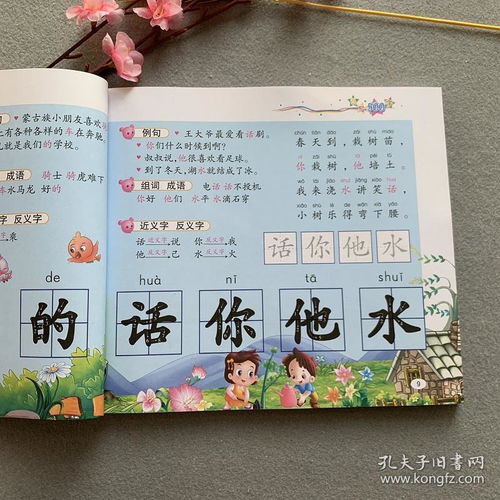 句 · 蒙古族小朋友喜欢
上有各种各样的车在奔驰,
就是我们的学校。
成语 骑士 骑虎难下
水马龙 好的
字 反义字
乘
de
的
500
例句 · 王大爷最爱看话剧。
· 你们什么时候到啊?
· 叔叔说,他很喜欢看足球。
· 到了冬天,湖水就结成了冰。
组词 成语 电话 话不投机
你好 他们 水平 水滴石穿
近义字 反义字
话 近义字 说 你 反义字 我
他 反义字 己 水 反义字 火
chūn tiān dào zāi shù miáo
春天到,栽树苗,
nǐ zāi shù tā péi tǔ
你栽树,他培土。
wǒ lái jiāo shuǐ jiǎng xiào huà
我来浇水讲笑话,
xiǎo shù lè de wān xià yāo
小树乐得弯下腰。
话你他水
huà nǐ tā shuǐ
话你他水
9
孔夫子旧书网
www.kongfz.com